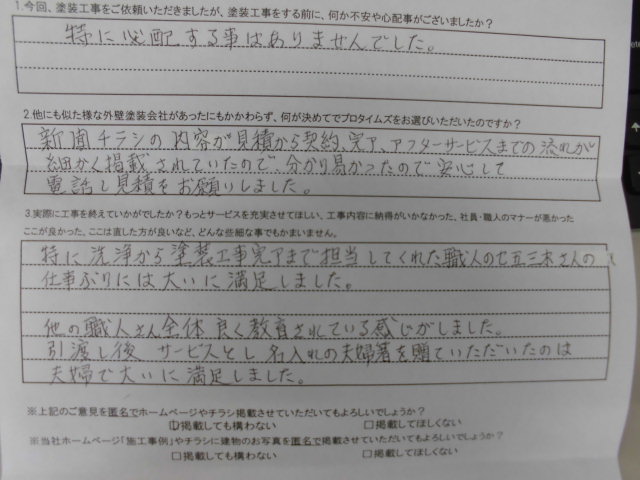 1.今回、塗装工事をご依頼いただきましたが、塗装工事をする前に、何か不安や心配事がございましたか？
特に心配する事はありませんでした。
2.他にも似た様な外壁塗装会社があったにもかかわらず、何が決めてでプロタイムズをお選びいただいたのですか？
新聞チラシの内容が見積から契約、完了、アフターサービスまでの流れが
細かく掲載されていたので、分かり易かったので安心して
電話し見積をお願いしました。
3.実際に工事を終えていかがでしたか？もっとサービスを充実させてほしい、工事内容に納得がいかなかった、社員・職人のマナーが悪かった
ここが良かった、ここは直した方が良いなど、どんな些細な事でもかまいません。
特に洗浄から塗装工事完了まで担当してくれた職人の七五三木さんの
仕事ぶりには大いに満足しました。
他の職人さん全体良く教育されている感じがしました。
引渡し後 サービスとし名入れの夫婦箸を贈ていただいたのは
夫婦で大いに満足しました。
※上記のご意見を匿名でホームページやチラシ掲載させていただいてもよろしいでしょうか？
□掲載しても構わない □掲載してほしくない
※当社ホームページ「施工事例」やチラシに建物のお写真を匿名で掲載させていただいてもよろしいでしょうか？
□掲載しても構わない □掲載してほしくない